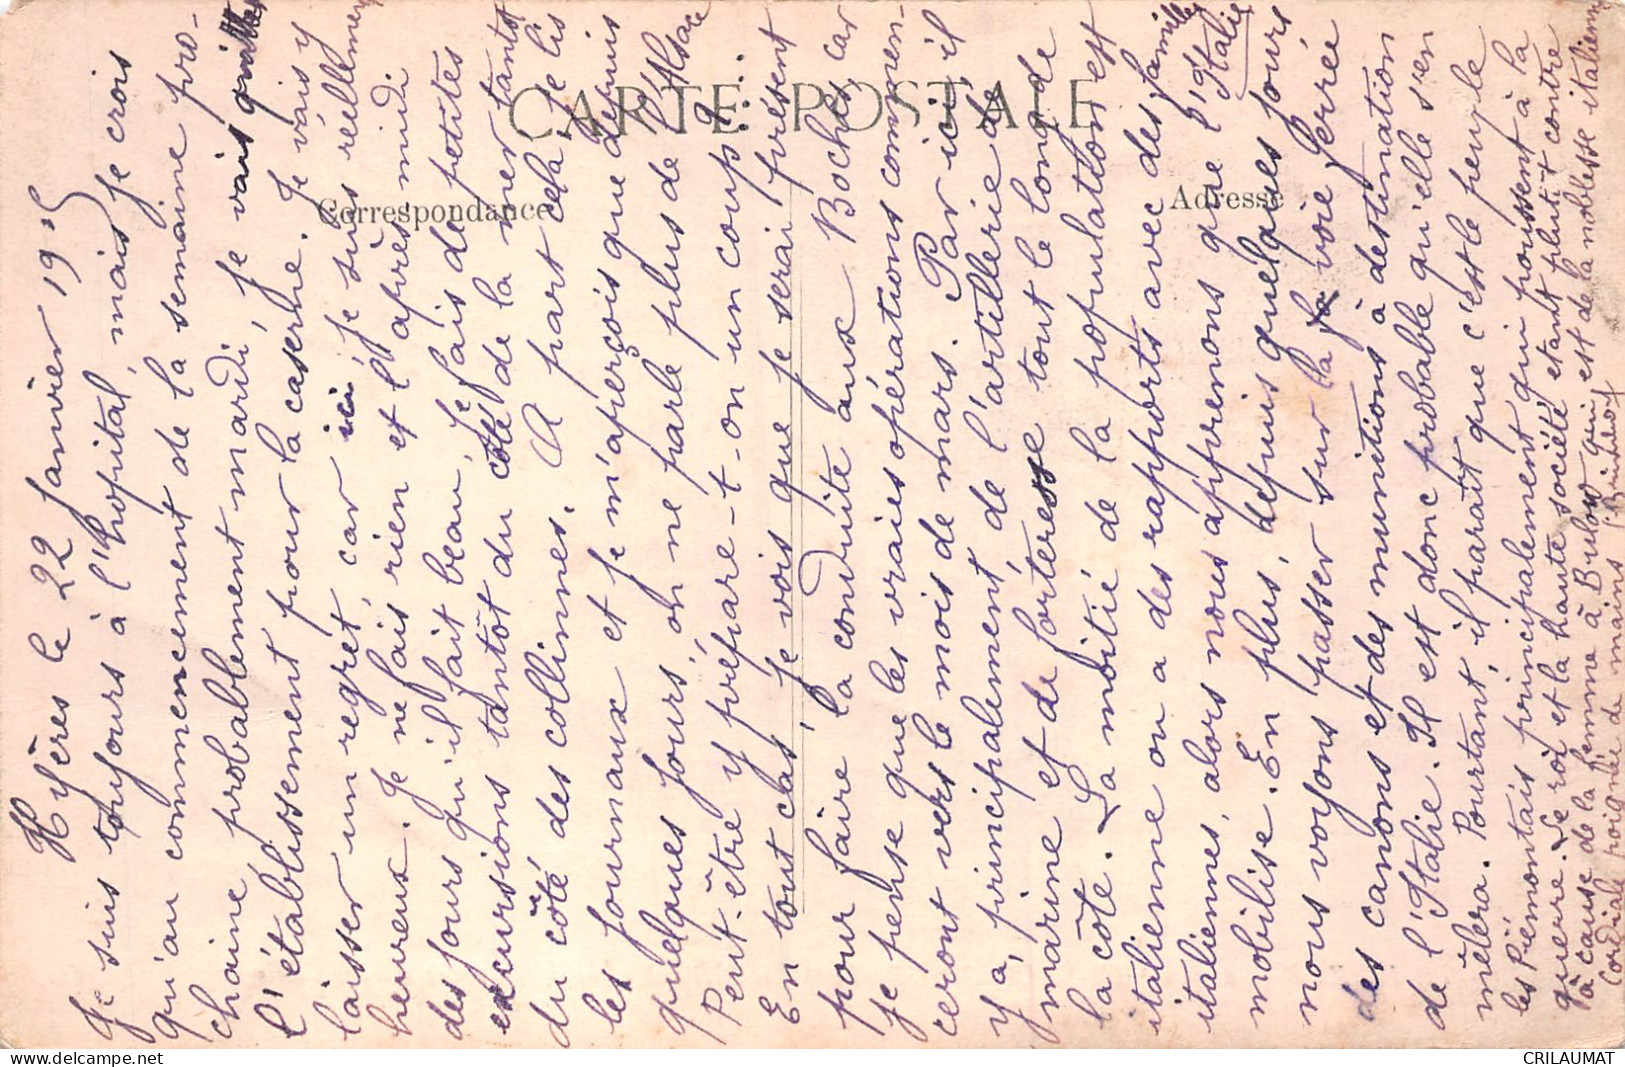 CARTE POSTALE
Correspondance
Adresse
Hyères le 22 janvier 1915
Je suis toujours à l'hopital, mais je crois
qu'au commencement de la semaine pro-
chaine probablement mardi, je vais quitter
l'établissement pour la caserne. Je vais y
laisser un regret, car ici je suis réellement
heureux. Je ne fais rien et l'après midi
des jours qu'il fait beau, je fais de petites
excursions tantôt du côté de la mer tantôt
du côté des collinnes. A part cela je lis
les journaux et je m'aperçois que depuis
quelques jours, on ne parle plus de l'Alsace
Peut-être y prépare-t-on un coup?.
En tout cas, je vois que je serai présent
pour faire la conduite aux Boches car
je pense que les vraies opérations commen-
ceront vers le mois de mars. Par ici il
y a, principalement, de l'artillerie de
marine et de forteresse tout le long de
la côte. La moitié de la population est
italienne on a des rapports avec des familles
italiennes, alors nous apprenons que l'Italie
mobilise. En plus, depuis quelques jours
nous voyons passer sur la voie ferrée
des canons et des munitions à destination
de l'Italie. Il est donc probable qu'elle s'en
mêlera. Pourtant, il paraît que c'est le peuple
les Piémontais principalement qui poussent à la
guerre. Le roi et la haute société étant plutôt contre
à cause de la femme à Bulow qui est de la noblesse italienne
Cordiale poignée de mains
CRILAUMAT